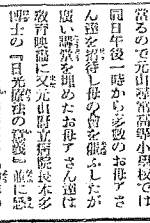 當るので元山尋常高等小學校では
同日午後一時から多數のお母アさ
ん達を招待し母の會を催ふしたが
廣い講堂を埋めたお母アさん達は
教育映畫に次元山府立病院長本多
博士の『日光療法の意義』並に感